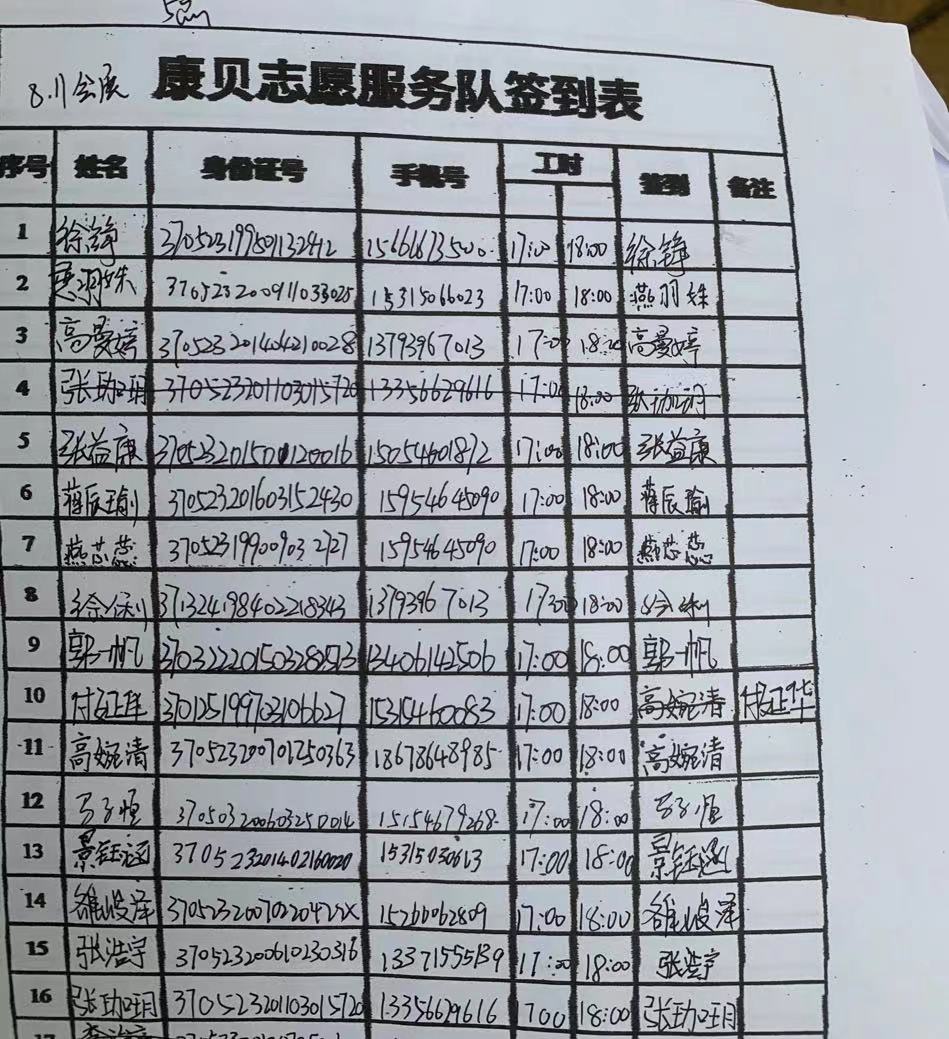 8.11会展 康贝志愿服务队签到表
序号 姓名 身份证号 手机号 工时 签到 备注
1 徐铮 17:00 18:00 徐铮
2 燕羽姝 15315066023 17:00 18:00 燕羽姝
3 高曼婷 370523201404210028 13793967013 17:00 18:00 高曼婷
4 370523201103015720 13356629616 17:00 18:00
5 张益康 15054601872 17:00 18:00 张益康
6 蒋辰瑜 370523201603152430 15954645090 17:00 18:00 蒋辰瑜
7 燕芯蕊 370523199009032727 15954645090 17:00 18:00 燕芯蕊
8 371324198402218343 13793967013 18:00
9 郭一帆 13406142506 17:00 18:00 郭一帆
10 付证华 370125199703106627 15315460083 17:00 18:00 高婉清 付证华
11 高婉清 370523200701250363 18678648985 17:00 18:00 高婉清
12 370503200603250014 15154679268 17:00 18:00
13 景钰涵 370523201402160020 17:00 18:00 景钰涵
14 雒峻泽 15266062809 17:00 18:00 雒峻泽
15 张浩宇 370523200610230316 13371555139 17:00 18:00 张浩宇
16 370523201103015720 13356629616 700 18:00